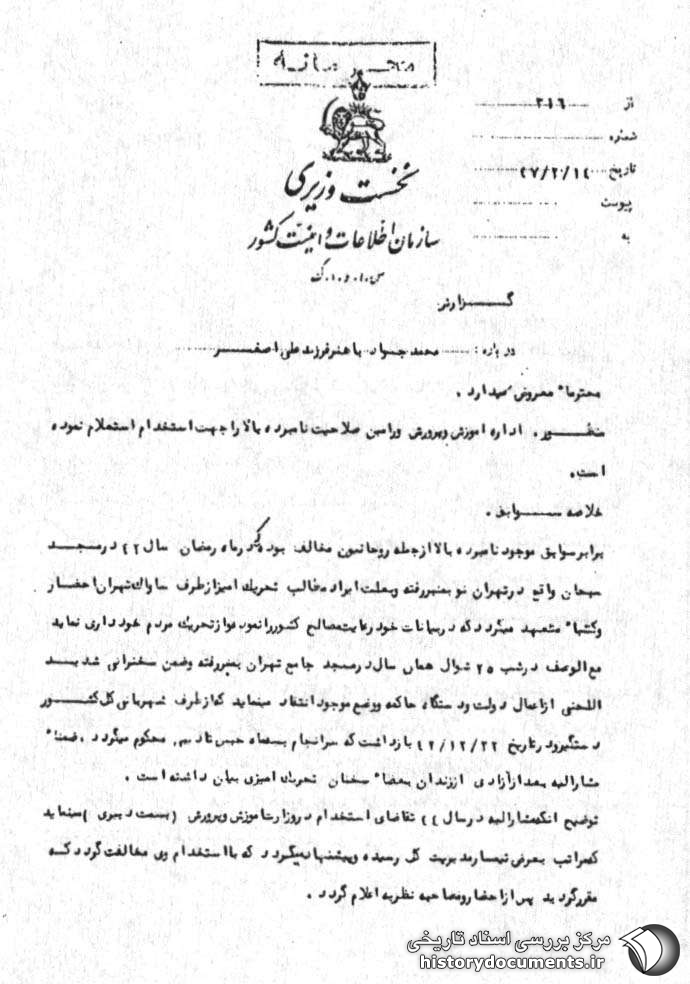 محرمانه
از ۳۱۶
شماره
تاریخ ۴۷/۲/۱٤
پیوست
به
نخست وزیری
سازمان اطلاعات و امنیت کشور
س.ا.و.ا.ک
گــزارش
درباره : محمد جواد باهنر فرزند علی اصغـــر
محترما" معروض میدارد .
منظــور . اداره آموزش وپرورش ورامین صلاحیت نامبرده بالا را جهت استخدام استعلام نموده
است.
خلاصه ســـوابق .
برابر سوابق موجود نامبرده بالا از جمله روحانیون مخالف بوده که در ماه رمضان سال ۴۲ درمسجد
سبحان واقع درتهران نو بمنبررفته وبعلت ایراد مطالب تحریک آمیز از طرف ساواک تهران احضار
وکتبا" متعهد میگردد که دربیانات خود رعایت مصالح کشوررا نموده واز تحریک مردم خودداری نماید
مع الوصف درشب ۲۵ شوال همان سال درمسجد جامع تهران بمنبررفته وضمن سخنرانی شدیــد
اللحنی از اعمال دولت ودستگاه حاکمه ووضع موجود انتقاد مینماید که از طرف شهربانی کل کشـــور
دستگیر ودرتاریخ ۴۲/۱۲/۲۲ بازداشت که سرانجام بسه ماه حبس تادیبی محکوم میگردد .ضمنا"
مشارالیه بعد از آزادی از زندان بعضا" سخنان تحریک آمیزی بیان داشته است .
توضیح اینکه مشارالیه درسال ٤٤ تقاضای استخدام دروزارت آموزش وپرورش (بسمت دبیری) مینماید
که مراتب بعرض تیمسار مدیریت کل رسیده وپیشنهاد میگردد که با استخدام وی مخالفت گردد کــه
مقررگردید پس از احضار ومصاحبه نظریه اعلام گردد .
مرکز بررسی اسناد تاریخی
historydocuments.ir